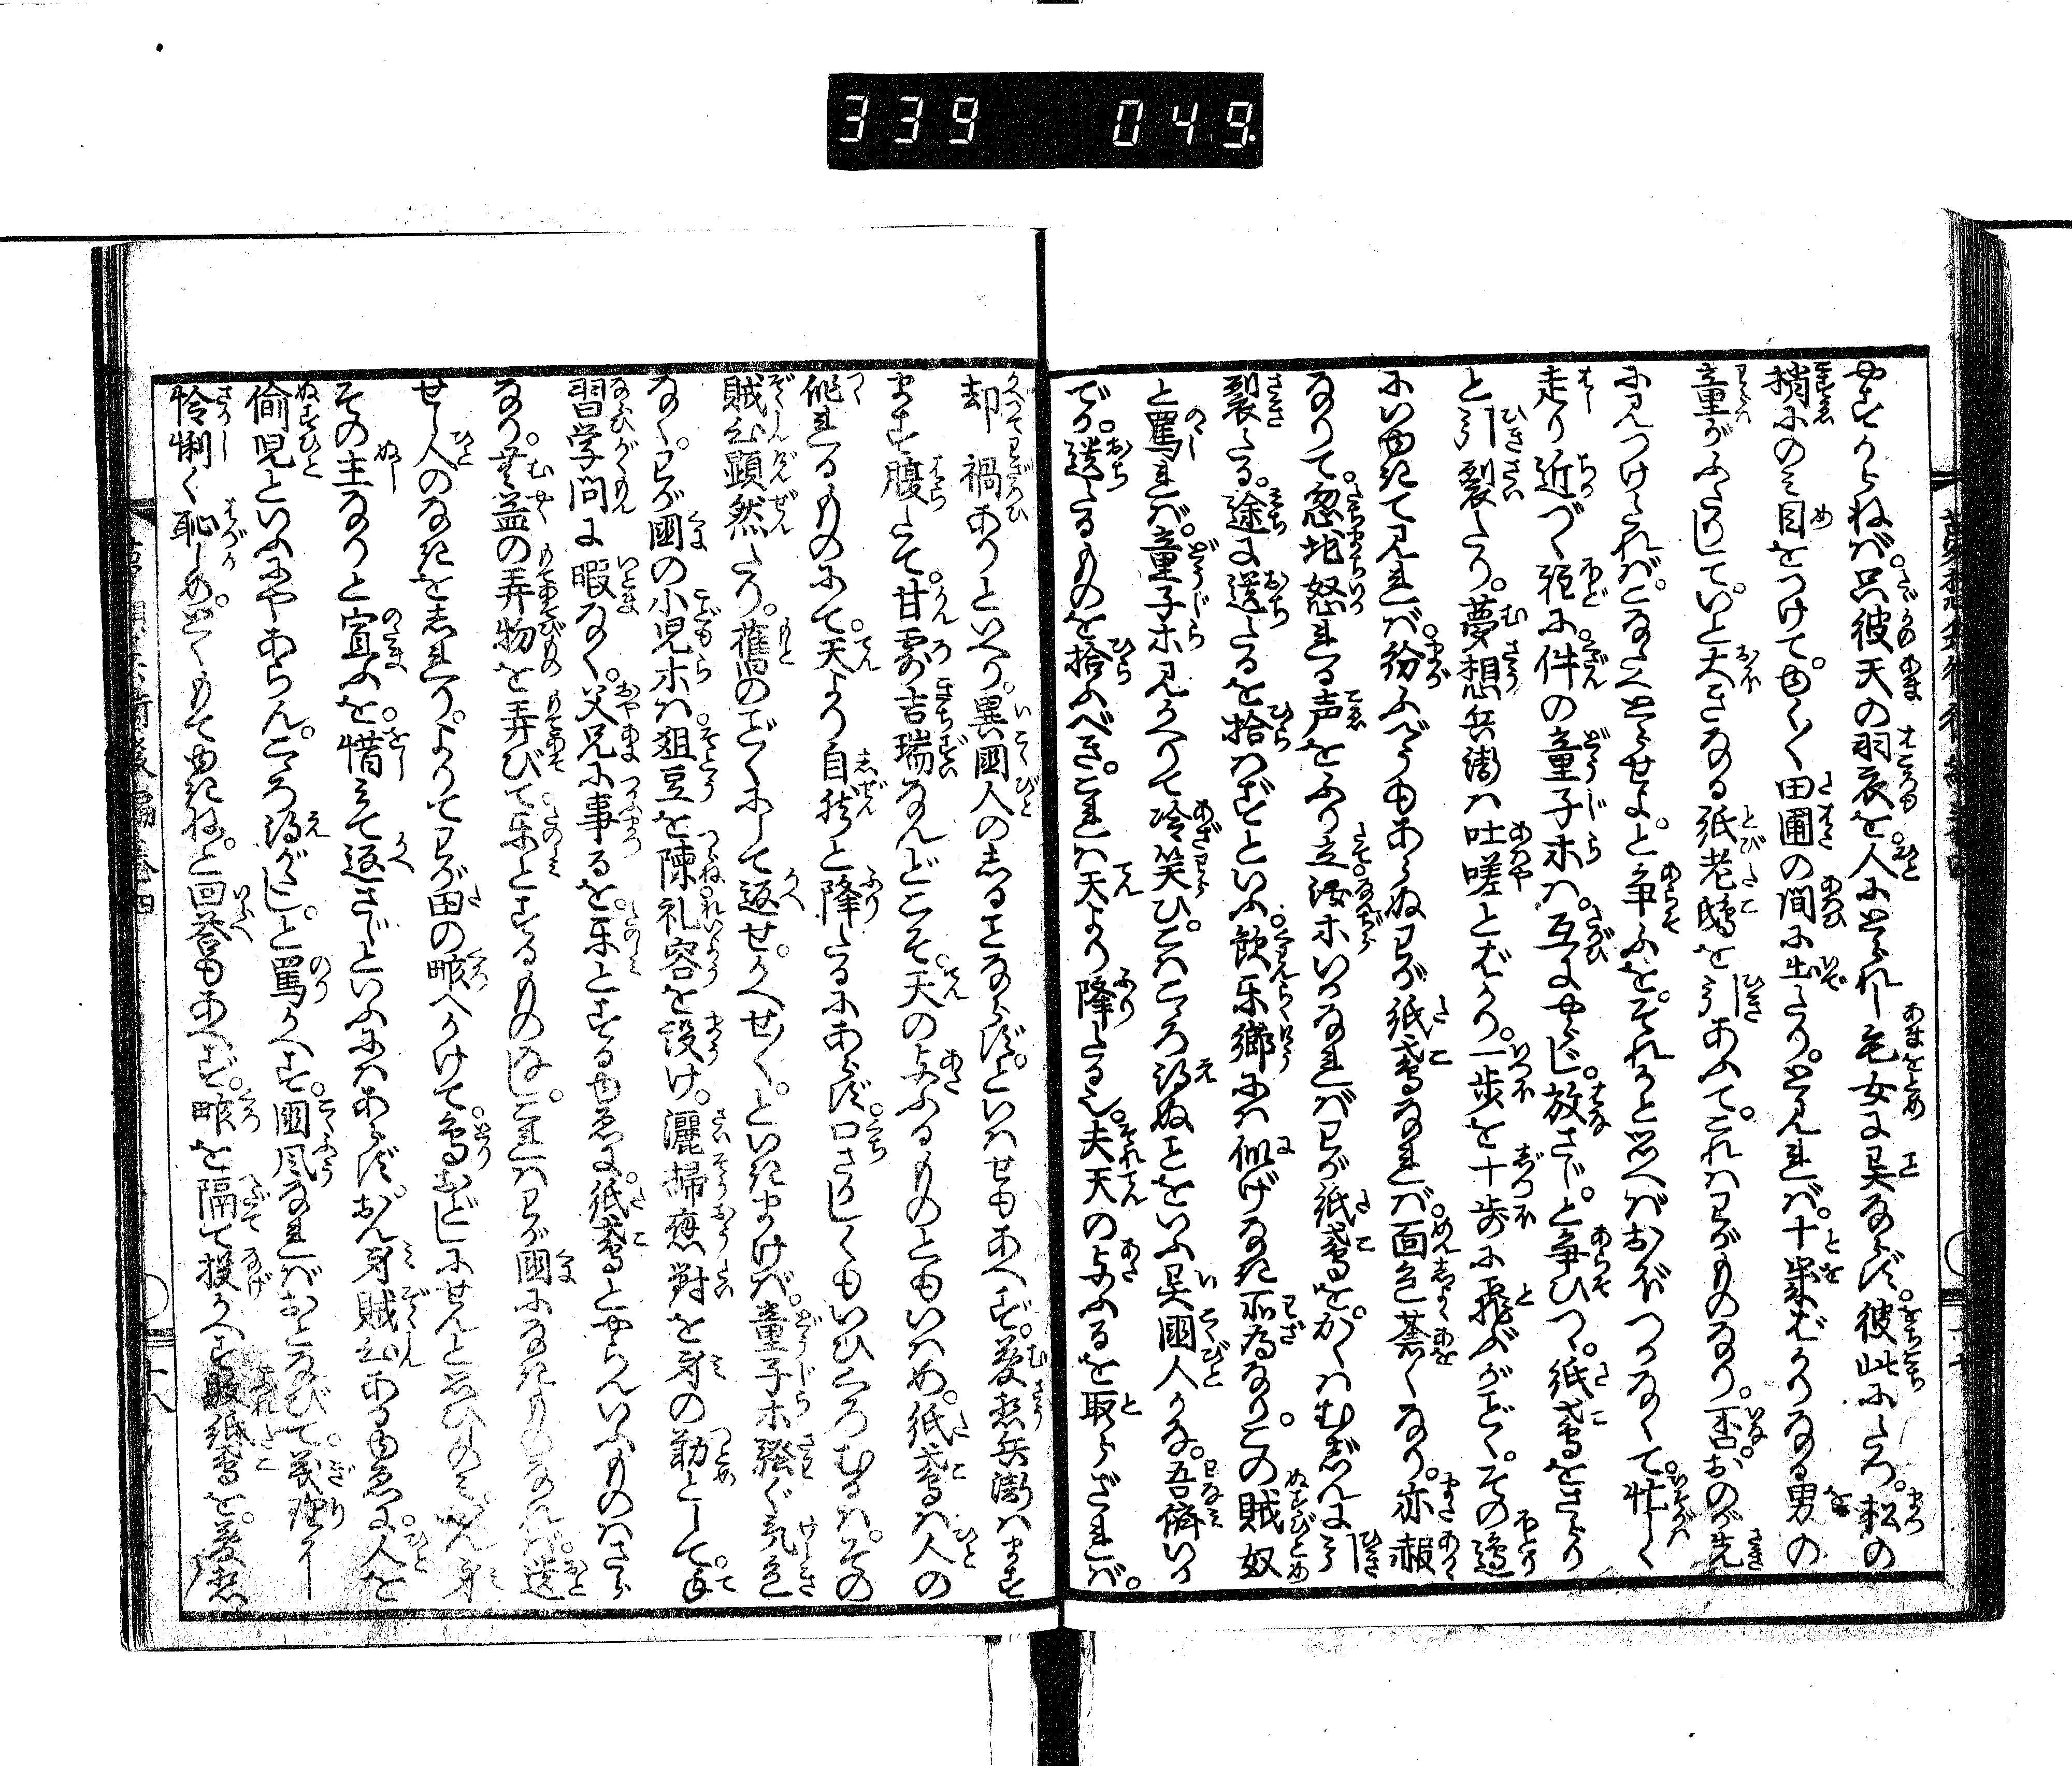 339 049.
やすからねば。只彼天の羽衣を人にとられし毛女に異ならず。彼此にたつ。松の
梢にのみ目をつけて。ゆく〳〵田圃の間に出たり。と見れば。十歳ばかりなる男の
童がふたりして。いと大きなる紙老鴟を引あふて。これはわがものなり。否おのが先
に見つけたれば。こなたへとらせよ。と争ふを。それかと思へばおぼつかなくて。忙しく
走り近づく程に。件の童子ホは。互にやらじ。放さじ。と争ひつ。紙鳶をさら〳〵
と引裂たり。夢想兵衛は吐嗟とばかり。一歩を十歩に飛ぶがごとく。その邊
にいゆきて見れば。紛ふべうもあらぬわが紙鳶なれば。面色蒼くなり。亦赧く
なりて。忽地怒れる声をふり立。汝ホいかなればわが紙鳶を。かくはむざんに引
裂たる。途に遺たるを拾はずといふ。飲楽郷には似げなき所為なり。この賊奴
と罵れば。童子ホ見かへりて冷笑ひ。こはこゝろ得ぬことをいふ異國人かな。吾儕いか
でか。遺たるものを拾ふべき。これは天より降たる也。夫天の与ふるを取らざれば。
却禍ありといへり。異國人のしることならず。といはせもあへず。夢想兵衛はます
ます腹たて。甘露吉瑞なんどこそ。天の与ふるものともいはめ。紙鳶は人の
作れるものにて。天より自然と降たるにあらず。口さかしくもいひくろむるは。その
賊心顕然たり。舊のごとくにして返せ。かへせ〳〵。といきまけば。童子ホ騒ぐ気色
なく。わが國の小児ホは。俎豆を陳礼容を設け。灑掃應對を身の勤として。手
習学問に暇なく。父兄に事るを。楽とするゆゑに。紙鳶とやらんいふものはさら
なり。無益の弄物を弄びて楽とするものなし。これはわが國になきものなれば。遺
せし人のなきをしれり。よりてわが田の畩へかけて。鳥おどしにせんと思ひしのみ。おん身
その主なりと宣ふを。惜みて返さじといふにはあらず。おん身賊心あるゆゑに。人を
偸児といふにやあらん。こゝろ得がたし。と罵かへす。國風なればおとなびて。義理
怜悧く恥しめ。とくもてゆきね。と回答もあへず。畩を隔て投かへす破紙鳶を。夢想